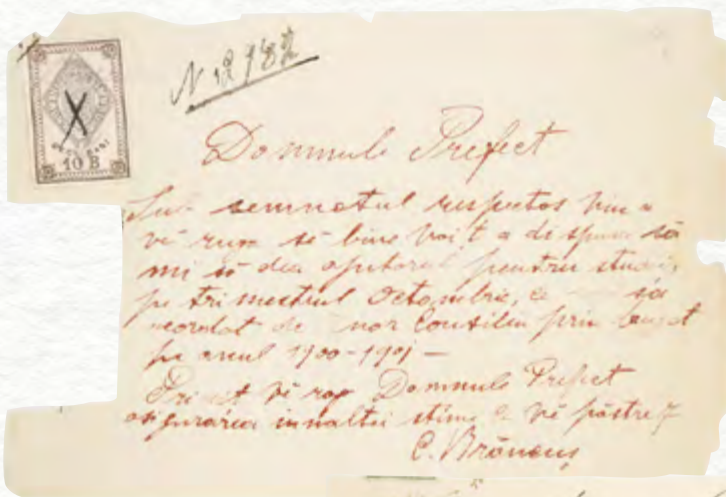 10 B
N 12982
Domnule Prefect
Sub semnatul respectos vin a
vě ruga sě bine voit a dispune să
mi să dea ajutorul pentru studii,
pe trimestrul Octombrie, ce
acordat de Consiliu prin buget
pe anul 1900-1901 –
Primit vě rog Domnule Prefect
asigurarea innaltei stime ce vě păstrez
C. Brâncuș